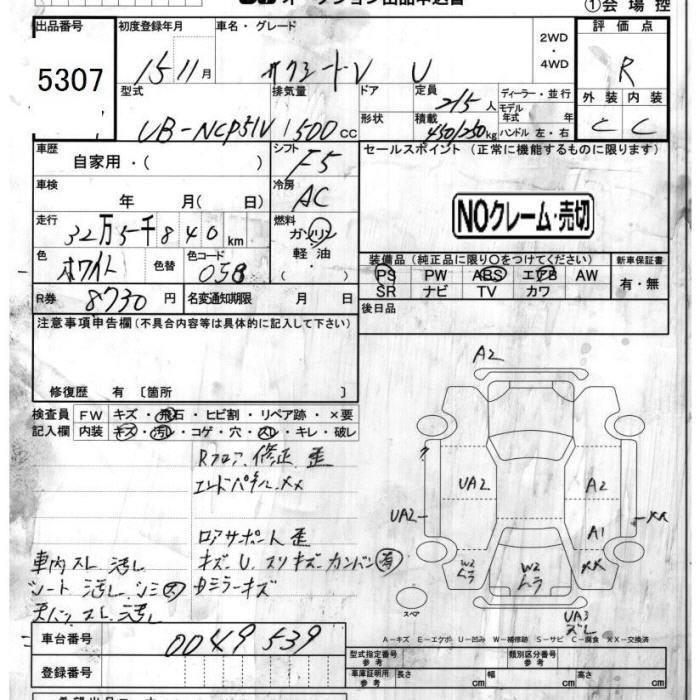 オークション出品申込書
①会場控
出品番号 初度登録年月 車名・グレード 評価点
5307 15 11月 サクシードV U 2WD・4WD R
型式 排気量 ドア 定員 ディーラー・並行 外装 内装
UB-NCP51V 1500cc 2/5人 モデル年式 年 C C
形状 積載 450/250kg ハンドル 左・右
車歴 シフト セールスポイント (正常に機能するものに限ります)
自家用・( ) F5
車検 冷房
年 月(日) AC
NOクレーム・売切
走行 燃料
32万5千840km ガソリン
軽油
・( )
色 色替 色コード
ホワイト 058
装備品 (純正品に限り○をつけてください) 新車保証書
PS PW ABS エアB AW 有・無
SR ナビ TV カワ
R券 8730円 名変通知期限 月 日
後日品
注意事項申告欄(不具合内容等は具体的に記入して下さい)
修復歴 有〔箇所 〕
検査員 FW キズ・飛石・ヒビ割・リペア跡・×要
記入欄 内装 キズ・汚レ・コゲ・穴・スレ・キレ・破レ
Rフロア 修正 歪
エンドパネル XX
ロアサポート 歪
車内スレ 汚レ キズ・U スリキズ・カンバン有
シート 汚レ シミ大 サミラーキズ
天バリ スレ 汚レ
A2
UA2 A2
UA2 XX
A1
W2 ムラ W2 ムラ XX
スペア UA3 ズレ
A‐キズ E‐エクボ U‐凹み W‐補修跡 S‐サビ C‐腐食 XX‐交換済
車台番号 0049539
型式指定番号 参考 類別区分番号 参考
登録番号 車庫証明用 参考 長さ cm 幅 cm 高さ cm